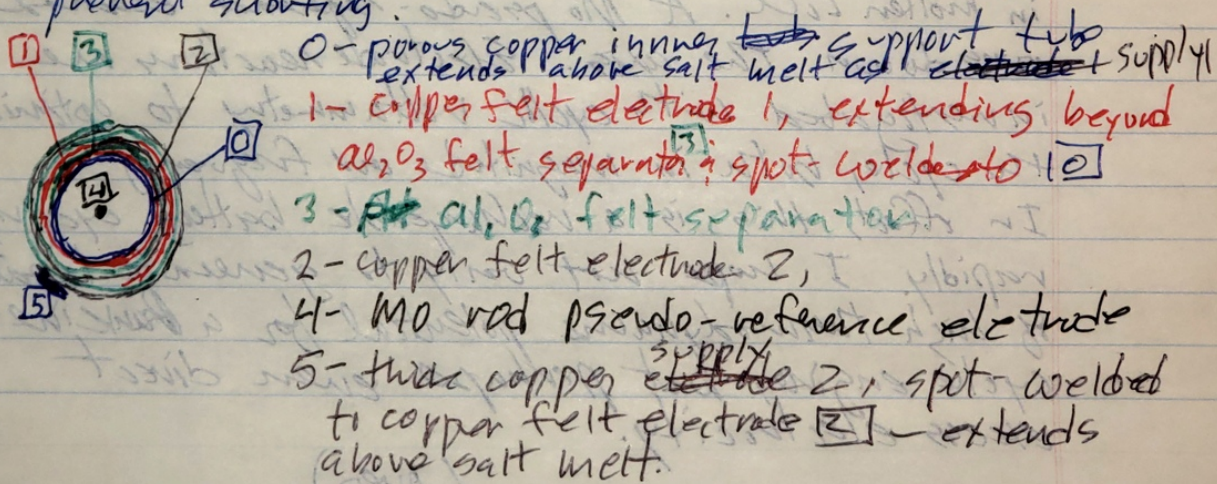 prevent shorting.
1 3 2
0 - porous copper innner support tube
extends above salt melt as supply 1
1 - copper felt electrode 1, extending beyond
al2O3 felt separator 3 ; spot-welde to 0
3 - al2O3 felt separator
2 - copper felt electrode 2,
4 - Mo rod pseudo-reference eletrode
5 - thick copper supply 2, spot-welded
to copper felt electrode 2 - extends
above salt melt.
0
4
5